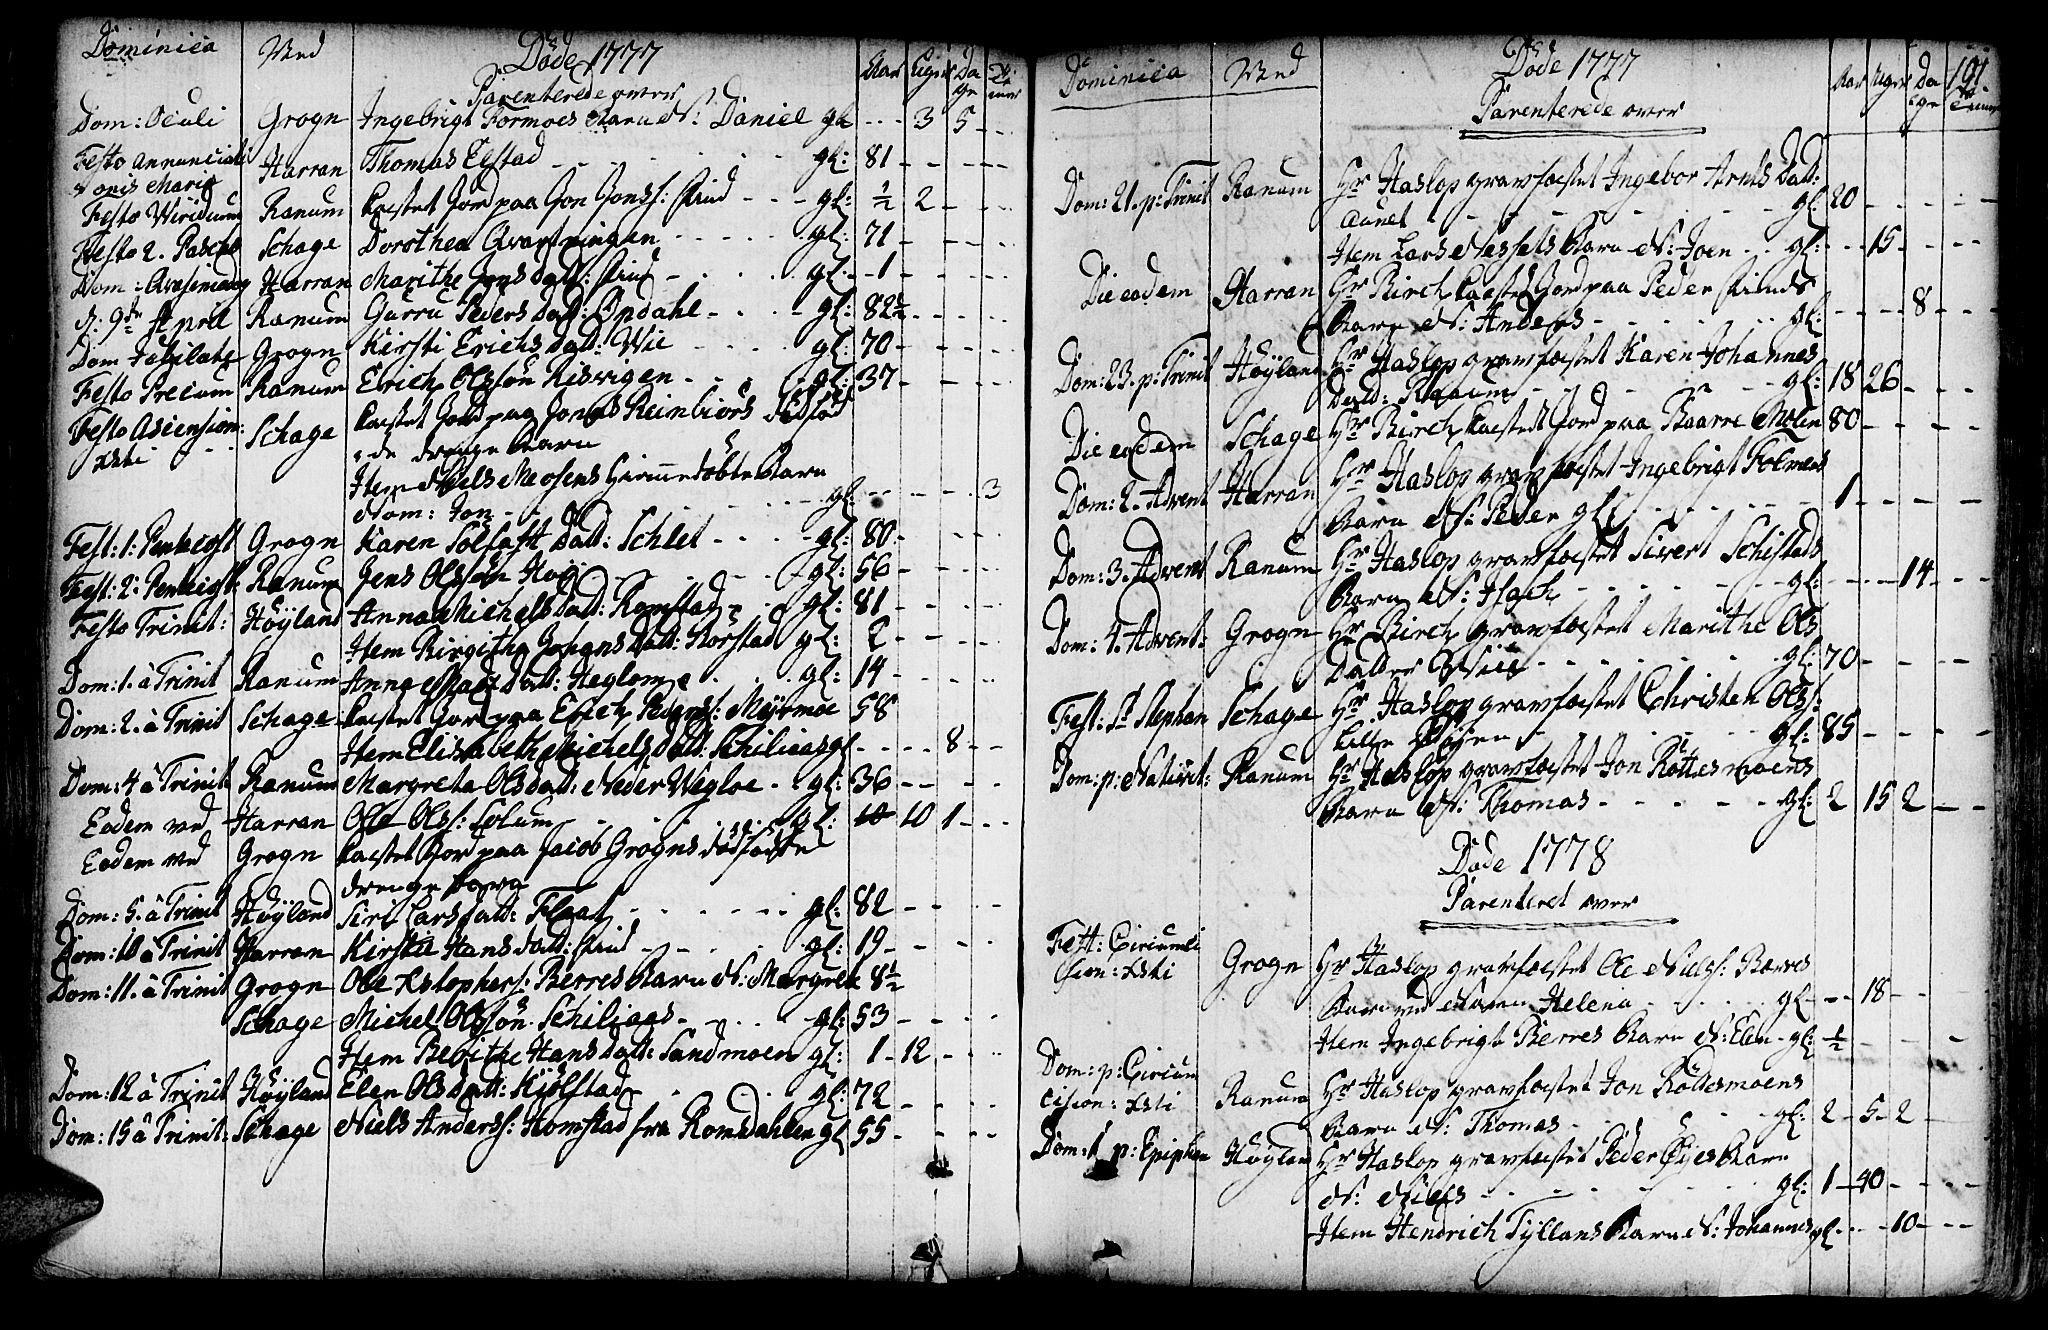 Dominica Ved Döde 1777 Aar Uger Dage Timer
Parenterede over
Dom: Oculi Grogn Ingebrigt Formoes Barn N: Daniel gl - - - 3 5 - -
Festo Annunciati Harran Thomas Elstad - - - gl: 81 - - - -
onis Mariæ
Festo Viridium Ranum Kastet Jord paa Jon Jonss: Lind - - - gl: ½ 2 - - -
Festo 2. Pasche Schage Dorothea Qvatningen - - - gl: 71 - - - -
Dom: Qvasimodog Harran Marithe Jonsdatt: Lind - - - gl: - 1 - - -
d. 9de April Ranum Gurru Pedersdatt: Opdahl - - - gl: 82½ - - -
Dom Jubilate Grogn Kirsti Erichsdatt: Wie - - - gl: 70 - - -
Festo Precum Ranum Erich Olssön Risvigen - - - gl: 37 - - -
Festo Ascension: Schage Kastet Jord paa Jonas Reinbiörs Dödföd
Xsti - - de drenge Barn
Item Niels Mosens Hiemedöbte Barn
Nom: Jon - - - gl - - - - 3
Fest: 1: Pentecost Grogn Karen Tolfast Datt: Schlet - - - gl: 80 - - -
Fest: 2: Pentecost: Ranum Jens Olssön Hoj - - - gl: 56 - - -
Festo Trinit: Höyland Anna Michelsdatt: Romstad - - gl: 81 - - -
Item Birgitha Johansdatt: Korstad gl: 2 - - -
Dom: 1. â Trinit Ranum Anna Matsdatt: Heglom - - - gl: 14 - - -
Dom: 2. â Trinit Schage Kastet Jord paa Erich Pederss: Myrmoe 58
Item Elisabeth Michelsdatt: Schiliaas gl - - - - 8 - -
Dom: 4 â Trinit Ranum Margreta Olsdatt: Neder Vegloe - - gl: 36 - - -
Eodem ved Harran Ole Olss: Solum - - - gl: 10 10 1 - -
Eodem ved Grogn Kastet Jord paa Jacob Grogns dödfödte
drenge barn
Dom: 5. â Trinit Höyland Siri Larsdatt: Flaat - - - gl: 82 - - -
Dom: 10 â Trinit Harran Kirstie Hansdatt: Lind - - - gl: 19 - - -
Dom: 11. â Trinit Grogn Ole Xstophers: Berres Barn N: Margret 8½
Schage Michel Olssön Schiliaas - - - gl: 53 - - -
Item Berithe Hansdatt: Sandmoen gl: 1 - 12 - - -
Dom: 12 â Trinit Höyland Elen Olsdatt: Kiölstad - - - gl: 72 - - -
Dom: 15 â Trinit: Schage Niels Anderss: Homstad fra Romsdahlen gl 55 - - -
Dominica Ved Döde 1777 Aar Uger Dage Timer 191
Parenterede over
Dom: 21. p: Trinit Ranum Hr Haslop gravfæstet Ingebor Arnts Dat:
Aunet - - - gl 20 - - - -
Item Lars Nessets Barn N: Joen - - gl: - - 15 - - -
Die eodem Harran Hr Birch Kastet Jord paa Peder Linds
Barn N: Anders - - - gl: - - - 8 - -
Dom: 23. p: Trinit Höyland Hr Haslop gravfæstet Karen Johannes
Datt: Ranum - - - gl: 18 26 - - -
Die eodem Schage Hr Birch Kastet Jord paa Baarre Molen 80 - - -
Dom: 2. Advent Harran Hr Haslop gravfæstet Ingebrigt Folmers
Barn N: Peder gl - - - 1 - - -
Dom: 3. Advent Ranum Hr Haslop gravfæstet Sivert Schistads
Barn N: Isach - - - gl: - - - 14 - - -
Dom: 4. Advent: Grogn Hr Birch gravfæstet Marithe Ols
Datter Wiie - - - gl: 70 - - -
Fest: St Stephan Schage Hr Haslop gravfæstet Christen Olss:
Lille Öyen - - - gl: 85 - - -
Dom: p: Nativit: Ranum Hr Haslop gravfæstet Jon Röttesmoens
Barn N: Thomas - - - gl: 2 15 2 - -
Döde 1778
Parenteret over
Fest: Circumci Grogn Hr Haslop gravfæstet Ole Nielss: Barres
sion: Xsti Barn ved Navn Helena - - - gl - - - 18 - -
Item Ingebrigt Berres Barn N: Elen - gl: ½ - - -
Dom: p: Circum Ranum Hr Haslop gravfæstet Jon Rödesmoens
cision: Xsti Barn N: Thomas - - - gl: 2 - 5 - 2 - -
Dom: 1 p: Epiphan Höyland Hr Haslop gravfæstet Peder Öyes Barn
N: Niels - - - gl: 1 - 40 - - -
Item Hendrich Tyllans Barn N: Johannes gl - - - 10 - - -